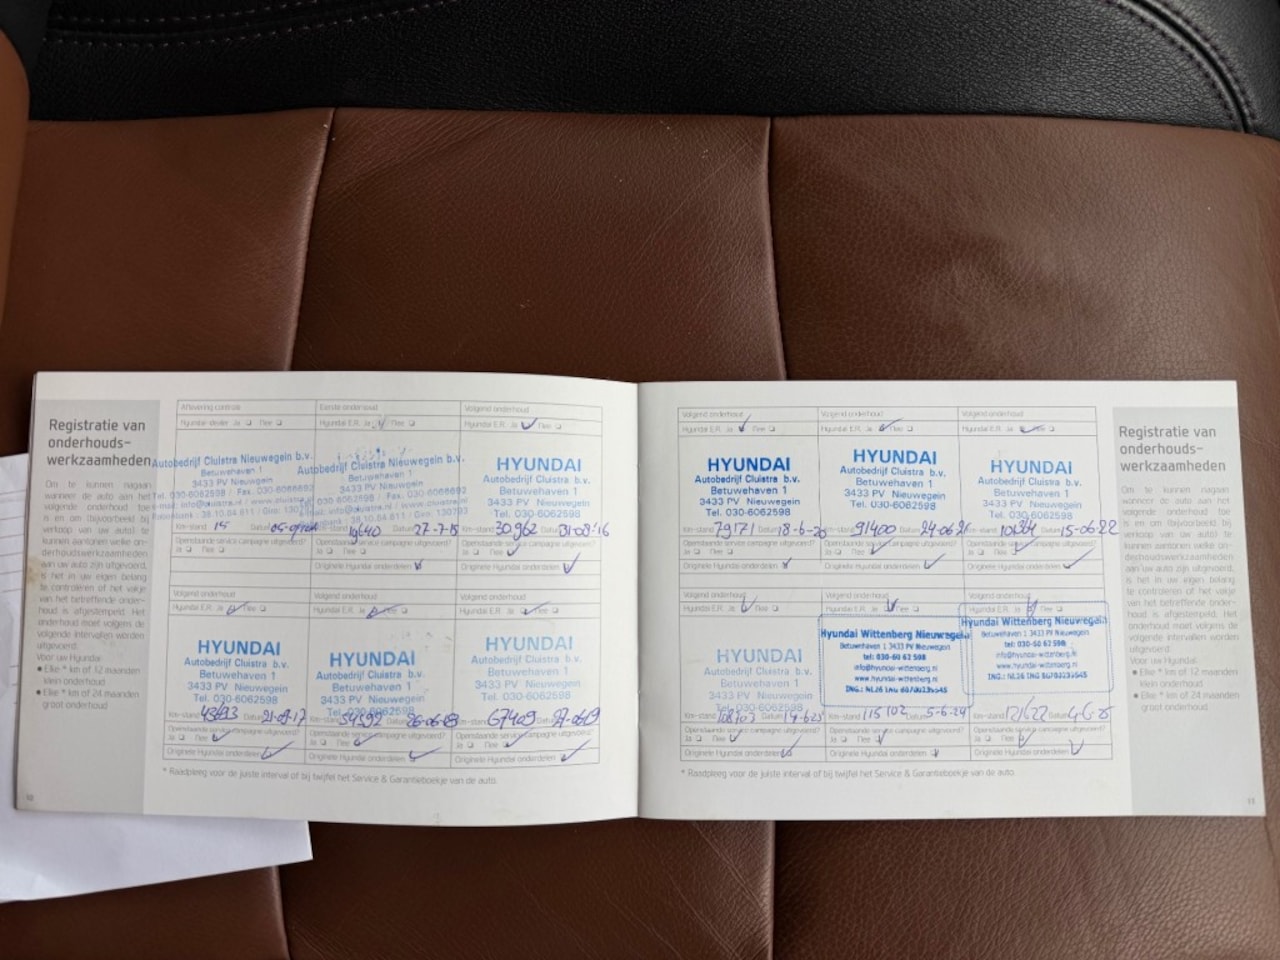 Registratie van
onderhouds-
werkzaamheden
Om te kunnen nagaan
wanneer de auto aan het
volgende onderhoud toe
is en om (bijvoorbeeld bij
verkoop van uw auto) te
kunnen aantonen welke on-
derhoudswerkzaamheden
aan uw auto zijn uitgevoerd,
is het in uw eigen belang
te controleren of het vakje
van het betreffende onder-
houd is afgestempeld. Het
onderhoud moet volgens de
volgende intervallen worden
uitgevoerd:
Voor uw Hyundai:
● Elke * km of 12 maanden
klein onderhoud
● Elke * km of 24 maanden
groot onderhoud
12
Aflevering controle
Hyundai-dealer Ja Nee
Autobedrijf Cluistra Nieuwegein b.v.
Betuwehaven 1
3433 PV Nieuwegein
Tel. 030-6062598 / Fax. 030-6066692
Km-stand 15 Datum
Openstaande service campagne uitgevoerd?
Ja Nee
Eerste onderhoud
Hyundai E.R. Ja Nee
Autobedrijf Cluistra Nieuwegein b.v.
Betuwehaven 1
3433 PV Nieuwegein
19640 Datum 27-7-15
Openstaande service campagne uitgevoerd?
Ja Nee
Originele Hyundai onderdelen
Volgend onderhoud
Hyundai E.R. Ja Nee
HYUNDAI
Autobedrijf Cluistra b.v.
Betuwehaven 1
3433 PV Nieuwegein
Tel. 030-6062598
Km-stand 30962 Datum 31-08-'16
Openstaande service campagne uitgevoerd?
Ja Nee
Originele Hyundai onderdelen
Volgend onderhoud
Hyundai E.R. Ja Nee
HYUNDAI
Autobedrijf Cluistra b.v.
Betuwehaven 1
3433 PV Nieuwegein
Tel. 030-6062598
Km-stand 43693 Datum 21-09-17
Openstaande service campagne uitgevoerd?
Ja Nee
Originele Hyundai onderdelen
Volgend onderhoud
Hyundai E.R. Ja Nee
HYUNDAI
Autobedrijf Cluistra b.v.
Betuwehaven 1
3433 PV Nieuwegein
Tel. 030-6062598
Km-stand 54592 Datum
Openstaande service campagne uitgevoerd?
Ja Nee
Originele Hyundai onderdelen
Volgend onderhoud
Hyundai E.R. Ja Nee
HYUNDAI
Autobedrijf Cluistra b.v.
Betuwehaven 1
3433 PV Nieuwegein
Tel. 030-6062598
Km-stand 67409 Datum
Openstaande service campagne uitgevoerd?
Ja Nee
Originele Hyundai onderdelen
* Raadpleeg voor de juiste interval of bij twijfel het Service & Garantieboekje van de auto.
Volgend onderhoud
Hyundai E.R. Ja Nee
HYUNDAI
Autobedrijf Cluistra b.v.
Betuwehaven 1
3433 PV Nieuwegein
Tel. 030-6062598
Km-stand 79171 Datum 18-6-20
Openstaande service campagne uitgevoerd?
Ja Nee
Originele Hyundai onderdelen
Volgend onderhoud
Hyundai E.R. Ja Nee
HYUNDAI
Autobedrijf Cluistra b.v.
Betuwehaven 1
3433 PV Nieuwegein
Tel. 030-6062598
Km-stand 91400 Datum 24-06-21
Openstaande service campagne uitgevoerd?
Ja Nee
Originele Hyundai onderdelen
Volgend onderhoud
Hyundai E.R. Ja Nee
HYUNDAI
Autobedrijf Cluistra b.v.
Betuwehaven 1
3433 PV Nieuwegein
Tel. 030-6062598
Km-stand Datum 15-06-22
Openstaande service campagne uitgevoerd?
Ja Nee
Originele Hyundai onderdelen
Volgend onderhoud
Hyundai E.R. Ja Nee
HYUNDAI
Autobedrijf Cluistra b.v.
Betuwehaven 1
3433 PV Nieuwegein
Tel. 030-6062598
Km-stand 108703 Datum 14-6-23
Openstaande service campagne uitgevoerd?
Ja Nee
Originele Hyundai onderdelen
Volgend onderhoud
Hyundai E.R. Ja Nee
Hyundai Wittenberg Nieuwegein
Betuwehaven 1 3433 PV Nieuwegein
tel: 030-60 62 598
info@hyundai-wittenberg.nl
www.hyundai-wittenberg.nl
Km-stand 115102 Datum 5-6-24
Openstaande service campagne uitgevoerd?
Ja Nee
Originele Hyundai onderdelen
Volgend onderhoud
Hyundai E.R. Ja Nee
Hyundai Wittenberg Nieuwegein
Betuwehaven 1 3433 PV Nieuwegein
tel: 030-60 62 598
info@hyundai-wittenberg.nl
www.hyundai-wittenberg.nl
Km-stand 121622 Datum 4-6-25
Openstaande service campagne uitgevoerd?
Ja Nee
Originele Hyundai onderdelen
* Raadpleeg voor de juiste interval of bij twijfel het Service & Garantieboekje van de auto.
Registratie van
onderhouds-
werkzaamheden
Om te kunnen nagaan
wanneer de auto aan het
volgende onderhoud toe
is en om (bijvoorbeeld bij
verkoop van uw auto) te
kunnen aantonen welke on-
derhoudswerkzaamheden
aan uw auto zijn uitgevoerd,
is het in uw eigen belang
te controleren of het vakje
van het betreffende onder-
houd is afgestempeld. Het
onderhoud moet volgens de
volgende intervallen worden
uitgevoerd:
Voor uw Hyundai:
● Elke * km of 12 maanden
klein onderhoud
● Elke * km of 24 maanden
groot onderhoud
13